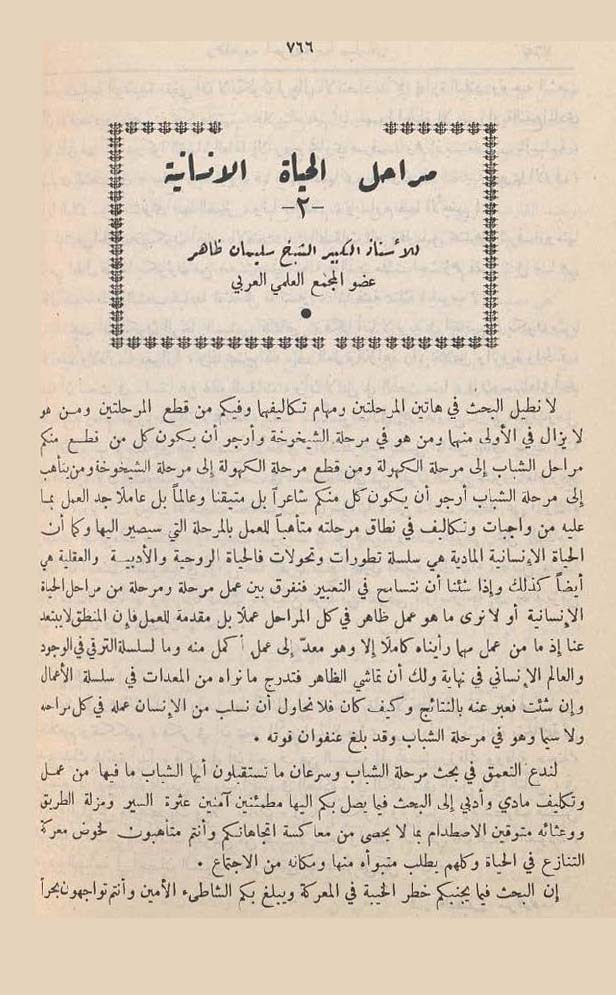 ٧٦٦
مراحل الحياة الانسانية
-٢-
للأستاذ الكبير الشيخ سليمان ظاهر
عضو المجمع العلمي العربي
لا نطيل البحث في هاتين المرحلتين ومهام تكاليفهما وفيكم من قطع المرحلتين ومن هو
لا يزال في الأولى منهما ومن هو في مرحلة الشيخوخة وأرجو أن يكون كل من قطع منكم
مراحل الشباب إلى مرحلة الكهولة ومن قطع مرحلة الكهولة إلى مرحلة الشيخوخة ومن يتأهب
إلى مرحلة الشباب أرجو أن يكون كل منكم شاعراً بل متيقنا وعالماً بل عاملا جد العمل بما
عليه من واجبات وتكاليف في نطاق مرحلته متأهباً للعمل بالمرحلة التي سيصير اليها وكما أن
الحياة الإنسانية المادية هي سلسلة تطورات وتحولات فالحياة الروحية والأدبية والعقلية هي
أيضاً كذلك وإذا شئنا أن نتسامح في التعبير فنفرق بين عمل مرحلة ومرحلة من مراحل الحياة
الإنسانية أو لا نرى ما هو عمل ظاهر في كل المراحل عملا بل مقدمة للعمل فإن المنطق لا يبتعد
عنا إذ ما من عمل مهما رأيناه كاملا إلا وهو معدّ إلى عمل أكمل منه وما لسلسلة الترقي في الوجود
والعالم الإنساني في نهاية ولك أن تماشي الظاهر فتدرج ما نراه من المعدات في سلسلة الأعمال
وإن شئت فعبر عنه بالنتائج وكيف كان فلا نحاول أن نسلب من الإنسان عمله في كل مراحله
ولا سيما وهو في مرحلة الشباب وقد بلغ عنفوان قوته .
لندع التعمق في بحث مرحلة الشباب وسرعان ما تستقبلون أيها الشباب ما فيها من عمل
وتكليف مادي وأدبي إلى البحث فيما يصل بكم اليها مطمئنين آمنين عثرة السير ومزلة الطريق
ووعثائه متوقين الاصطدام بما لا يحصى من معاكسة اتجاهاتكم وأنتم متأهبون لخوض معركة
التنازع في الحياة وكلهم يطلب متبوأه منها ومكانه من الاجتماع .
إن البحث فيما يجنبكم خطر الخيبة في المعركة ويبلغ بكم الشاطىء الأمين وأنتم تواجهون بحراً